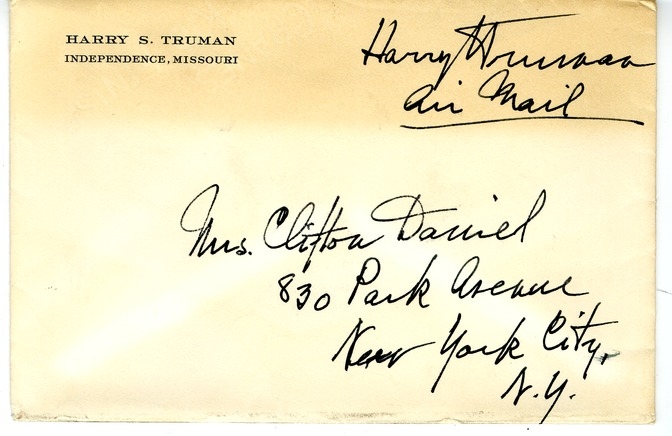 HARRY S. TRUMAN
INDEPENDENCE, MISSOURI
Harry S Truman
Air Mail
Mrs. Clifton Daniel
830 Park Avenue
New York City,
N.Y.